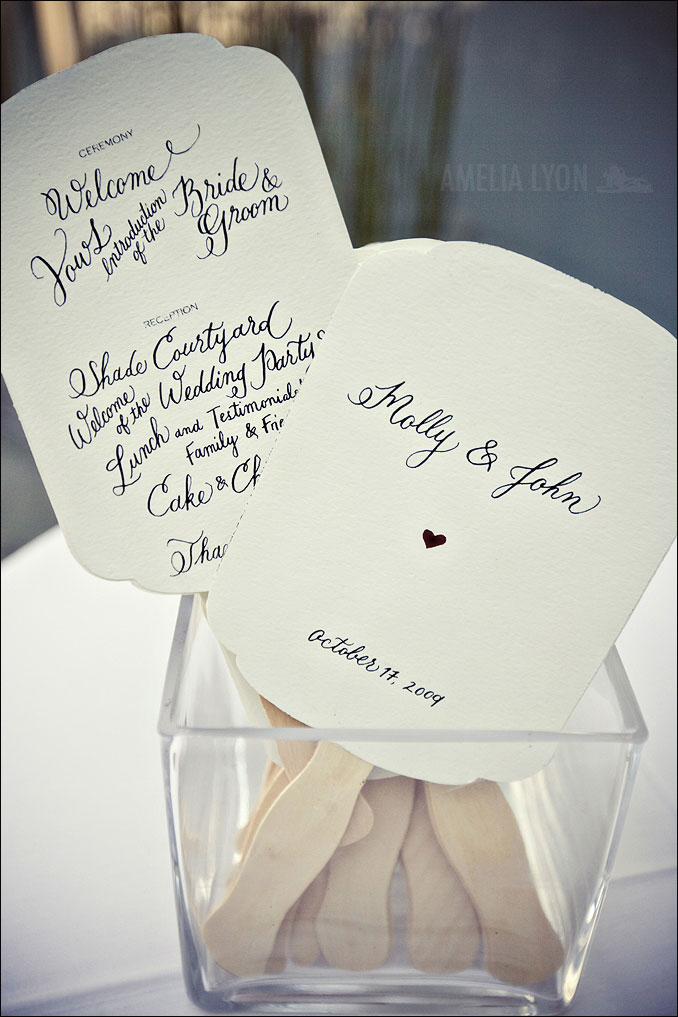 CEREMONY
Welcome
Vows Introduction of the Bride & Groom
RECEPTION
Shade Courtyard
Welcome of the Wedding Party
Lunch and Testimonial
Family &
Cake &
Molly & John
October 17, 2009
AMELIA LYON